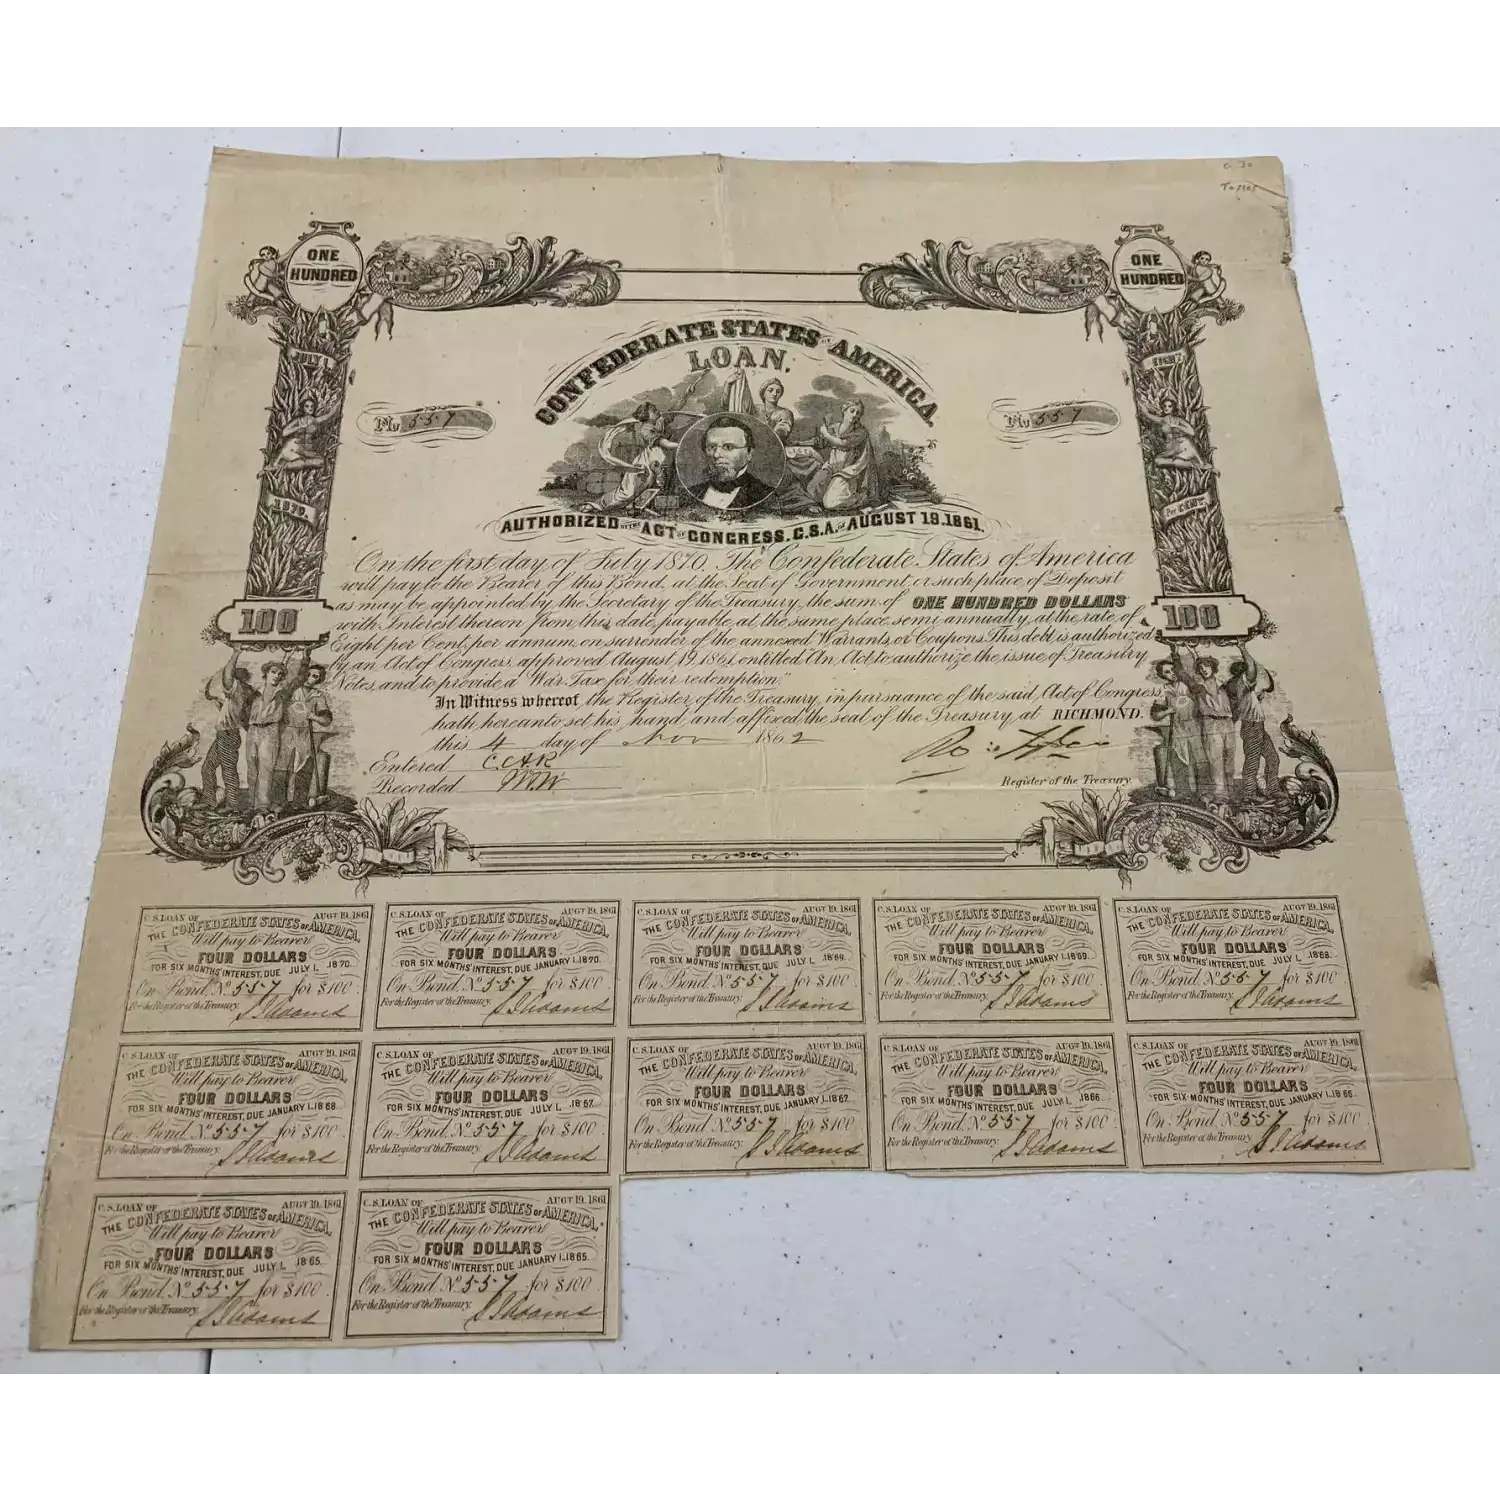 C 30
ONE
HUNDRED
ONE
HUNDRED
CONFEDERATE STATES OF AMERICA
LOAN.
JULY 1.
EIGHT
No 557
No 557
1870.
Per CENT.
AUTHORIZED BY THE ACT OF CONGRESS, C.S.A. OF AUGUST 19.1861.
On the first day of July 1870, The Confederate States of America
will pay to the Bearer of this Bond, at the Seat of Government, or such place of Deposit
as may be appointed by the Secretary of the Treasury, the sum of ONE HUNDRED DOLLARS
with Interest thereon from this date, payable at the same place semi annually, at the rate of
Eight per Cent, per annum, on surrender of the annexed Warrants, or Coupons. This debt is authorized
by an Act of Congress, approved August 19, 1861, entitled "An Act to authorize the issue of Treasury
Notes, and to provide a War Tax for their redemption."
100
100
In Witness whereof the Register of the Treasury, in pursuance of the said Act of Congress,
hath hereunto set his hand and affixed the seal of the Treasury, at RICHMOND.
this 4 day of Nov 1862
Entered C.A.R
Recorded
Register of the Treasury.
C.S. LOAN OF AUGT 19. 1861
THE CONFEDERATE STATES OF AMERICA,
Will pay to Bearer
FOUR DOLLARS
FOR SIX MONTHS' INTEREST, DUE JULY 1, 1870.
On Bond, No 557 for $100.
For the Register of the Treasury. S J Adams
C.S. LOAN OF AUGT 19. 1861
THE CONFEDERATE STATES OF AMERICA,
Will pay to Bearer
FOUR DOLLARS
FOR SIX MONTHS' INTEREST, DUE JANUARY 1, 1870.
On Bond, No 557 for $100.
For the Register of the Treasury. S J Adams
C.S. LOAN OF AUGT 19. 1861
THE CONFEDERATE STATES OF AMERICA,
Will pay to Bearer
FOUR DOLLARS
FOR SIX MONTHS' INTEREST, DUE JULY 1, 1869.
On Bond, No 557 for $100.
For the Register of the Treasury. S J Adams
C.S. LOAN OF AUGT 19. 1861
THE CONFEDERATE STATES OF AMERICA,
Will pay to Bearer
FOUR DOLLARS
FOR SIX MONTHS' INTEREST, DUE JANUARY 1, 1869.
On Bond, No 557 for $100.
For the Register of the Treasury. S J Adams
C.S. LOAN OF AUGT 19. 1861
THE CONFEDERATE STATES OF AMERICA,
Will pay to Bearer
FOUR DOLLARS
FOR SIX MONTHS' INTEREST, DUE JULY 1, 1868.
On Bond, No 557 for $100.
For the Register of the Treasury. S J Adams
C.S. LOAN OF AUGT 19. 1861
THE CONFEDERATE STATES OF AMERICA,
Will pay to Bearer
FOUR DOLLARS
FOR SIX MONTHS' INTEREST, DUE JANUARY 1, 1868.
On Bond, No 557 for $100.
For the Register of the Treasury. S J Adams
C.S. LOAN OF AUGT 19. 1861
THE CONFEDERATE STATES OF AMERICA,
Will pay to Bearer
FOUR DOLLARS
FOR SIX MONTHS' INTEREST, DUE JULY 1, 1867.
On Bond, No 557 for $100.
For the Register of the Treasury. S J Adams
C.S. LOAN OF AUGT 19. 1861
THE CONFEDERATE STATES OF AMERICA,
Will pay to Bearer
FOUR DOLLARS
FOR SIX MONTHS' INTEREST, DUE JANUARY 1, 1867.
On Bond, No 557 for $100.
For the Register of the Treasury. S J Adams
C.S. LOAN OF AUGT 19. 1861
THE CONFEDERATE STATES OF AMERICA,
Will pay to Bearer
FOUR DOLLARS
FOR SIX MONTHS' INTEREST, DUE JULY 1, 1866.
On Bond, No 557 for $100.
For the Register of the Treasury. S J Adams
C.S. LOAN OF AUGT 19. 1861
THE CONFEDERATE STATES OF AMERICA,
Will pay to Bearer
FOUR DOLLARS
FOR SIX MONTHS' INTEREST, DUE JANUARY 1, 1866.
On Bond, No 557 for $100.
For the Register of the Treasury. S J Adams
C.S. LOAN OF AUGT 19. 1861
THE CONFEDERATE STATES OF AMERICA,
Will pay to Bearer
FOUR DOLLARS
FOR SIX MONTHS' INTEREST, DUE JULY 1, 1865.
On Bond, No 557 for $100.
For the Register of the Treasury. S J Adams
C.S. LOAN OF AUGT 19. 1861
THE CONFEDERATE STATES OF AMERICA,
Will pay to Bearer
FOUR DOLLARS
FOR SIX MONTHS' INTEREST, DUE JANUARY 1, 1865.
On Bond, No 557 for $100.
For the Register of the Treasury. S J Adams